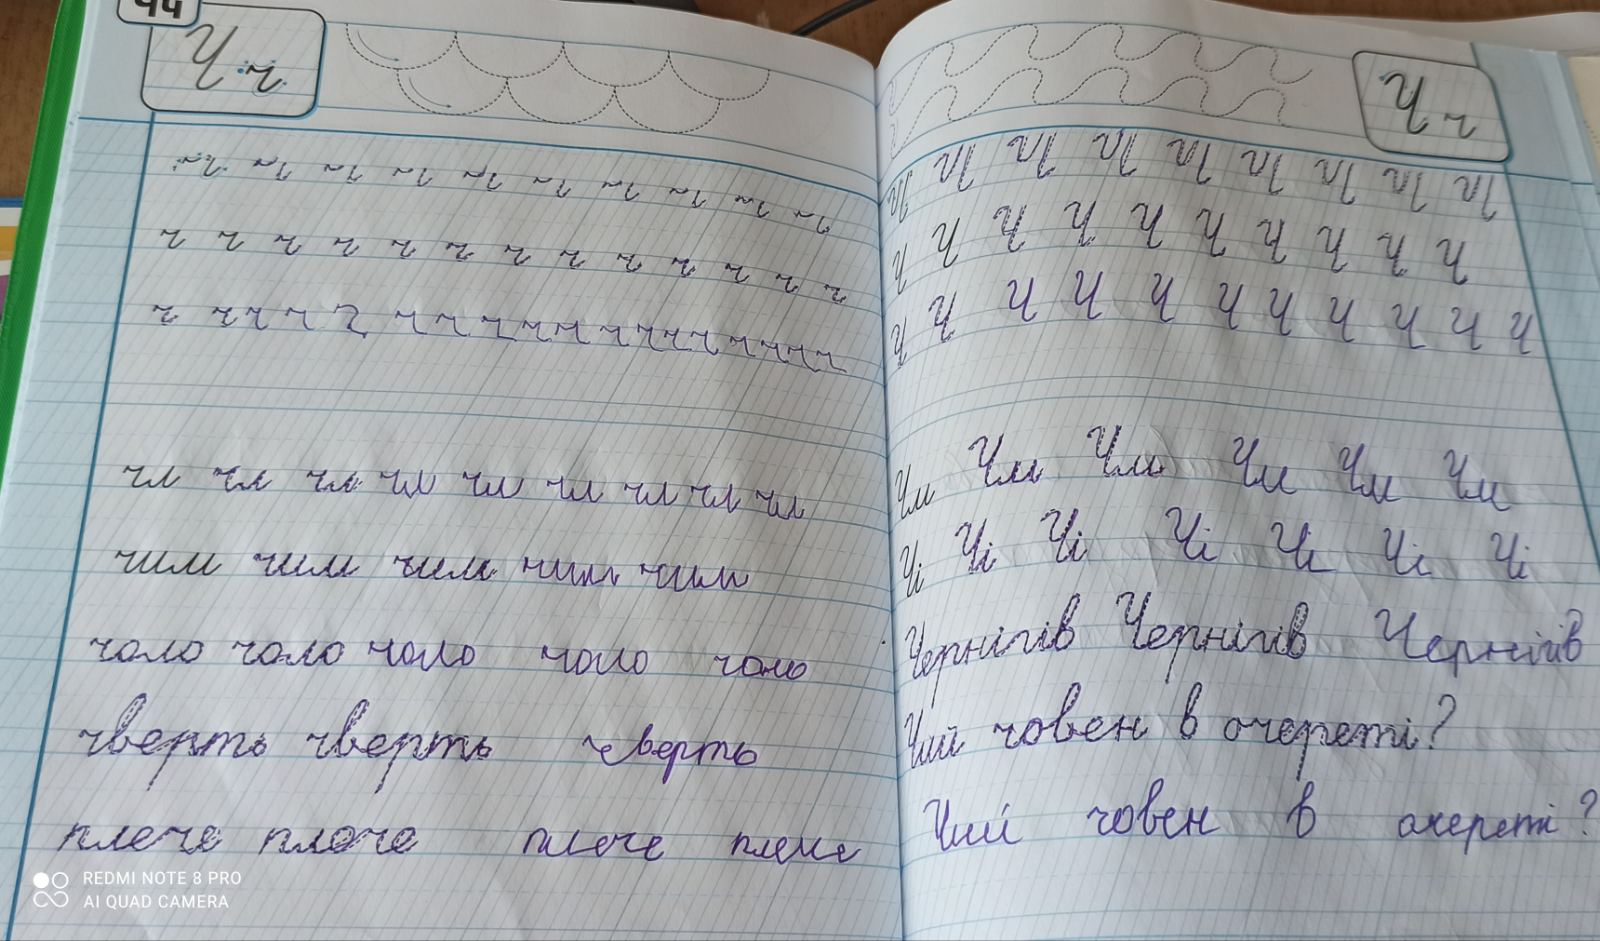 44
Ч ч
ч ч ч ч ч ч ч ч ч ч
ч ч ч ч ч ч ч ч ч ч ч ч ч
ч ч ч ч ч ч ч ч ч ч ч ч ч ч ч ч ч
чл чл чл чл чл чл чл чл чл
чим чим чим чим чим
чоло чоло чоло чоло чоло
чверть чверть чверть
плече плече плече плече
Ч ч
Ч Ч Ч Ч Ч Ч Ч Ч Ч
Ч Ч Ч Ч Ч Ч Ч Ч Ч
Ч Ч Ч Ч Ч Ч Ч Ч Ч Ч Ч
Чм Чм Чм Чм Чм Чм
Чі Чі Чі Чі Чі Чі Чі
Чернігів Чернігів Чернігів
Чий човен в очереті?
Чий човен в очереті?
REDMI NOTE 8 PRO
AI QUAD CAMERA